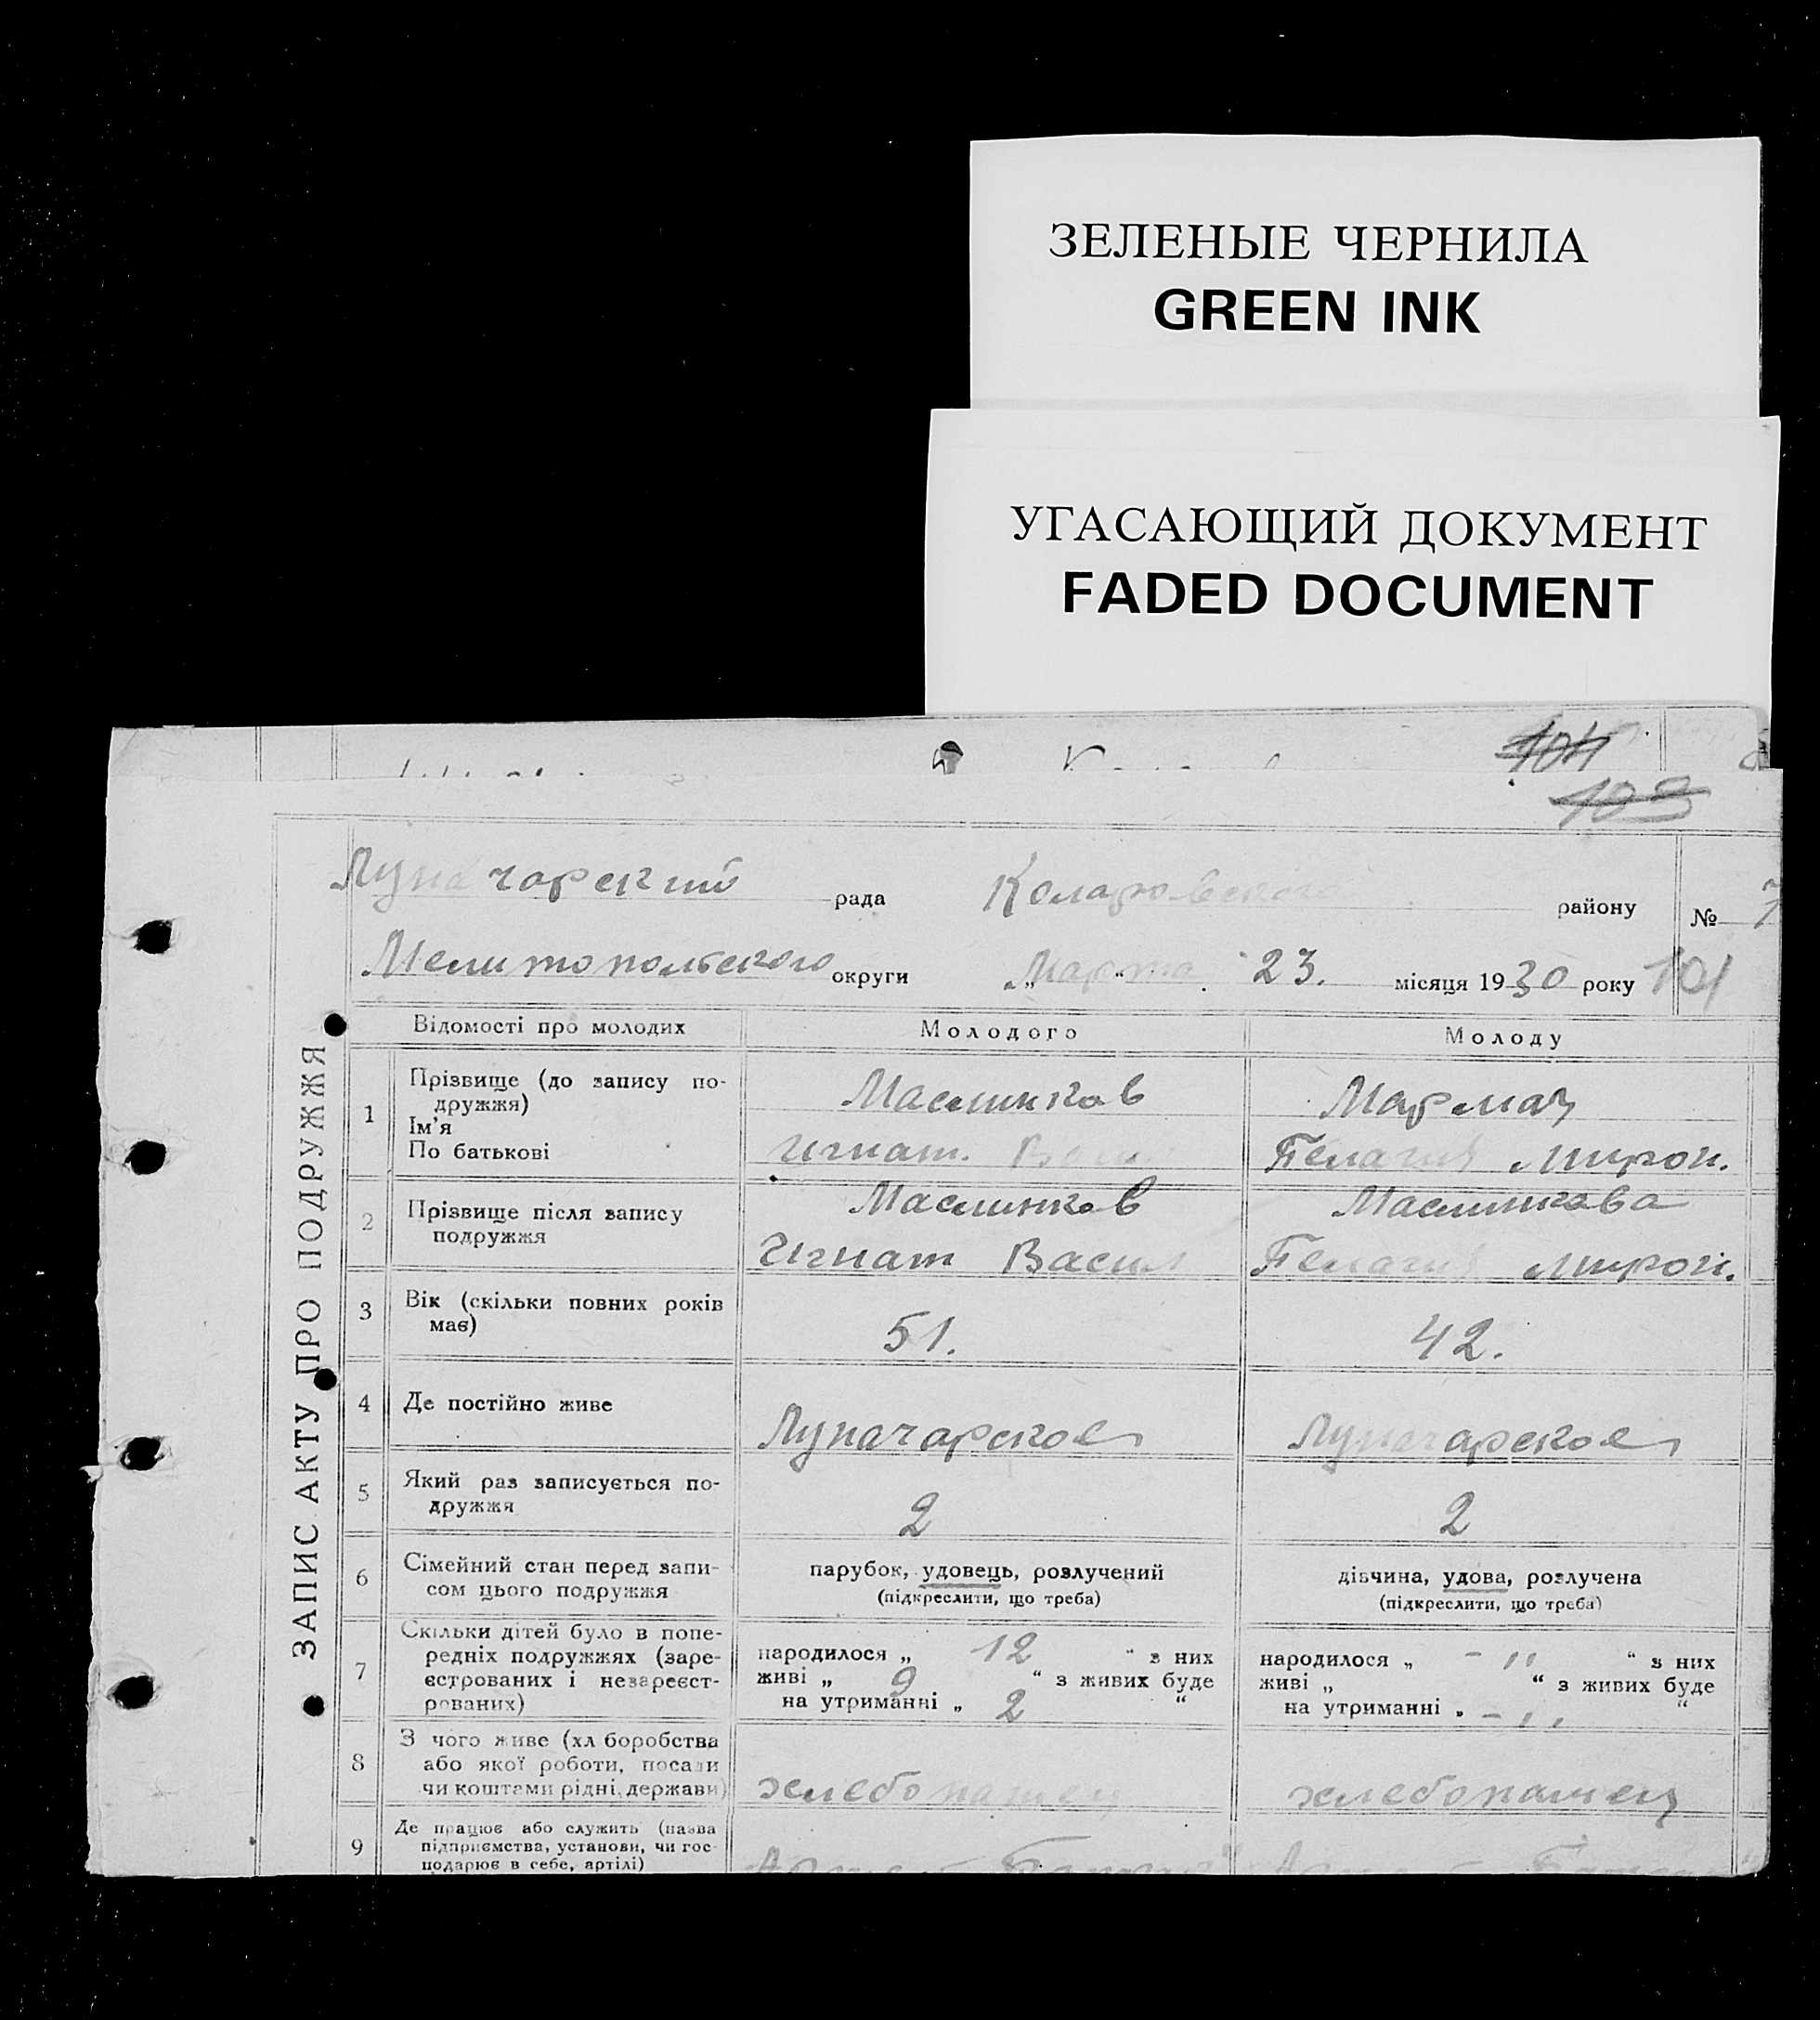 ЗЕЛЕНЫЕ ЧЕРНИЛА
GREEN INK
УГАСАЮЩИЙ ДОКУМЕНТ
FADED DOCUMENT
104
103
Луначарский рада Коларовского району № 7
Мелитопольского округи „Марта“ 23. місяця 1930 року 101
ЗАПИС АКТУ ПРО ПОДРУЖЖЯ
Відомості про молодих Молодого Молоду
1 Прізвище (до запису по-
дружжя)
Ім'я
По батькові
Маслинков Мармаз
Игнат. Васил Пелагия Мирон.
2 Прізвище після запису
подружжя
Маслинков Маслинкова
Игнат Васил Пелагия Мирон.
3 Вік (скільки повних років
має)
51. 42.
4 Де постійно живе
Луначарское Луначарское
5 Який раз записується по-
дружжя
2 2
6 Сімейний стан перед запи-
сом цього подружжя
парубок, удовець, розлучений
(підкреслити, що треба)
дівчина, удова, розлучена
(підкреслити, що треба)
7 Скільки дітей було в попе-
редніх подружжях (заре-
єстрованих і незареєст-
рованих)
народилося „ 12 “ з них
живі „ 9 “ з живих буде
на утриманні „ 2 “
народилося „ - ,, “ з них
живі „ “ з живих буде
на утриманні „ - ,, “
8 З чого живе (хл боробства
або якої роботи, посади
чи коштами рідні, держави)
хлебопашец хлебопашец
9 Де працює або служить (назва
підприємства, установи, чи гос-
подарює в себе, артілі)